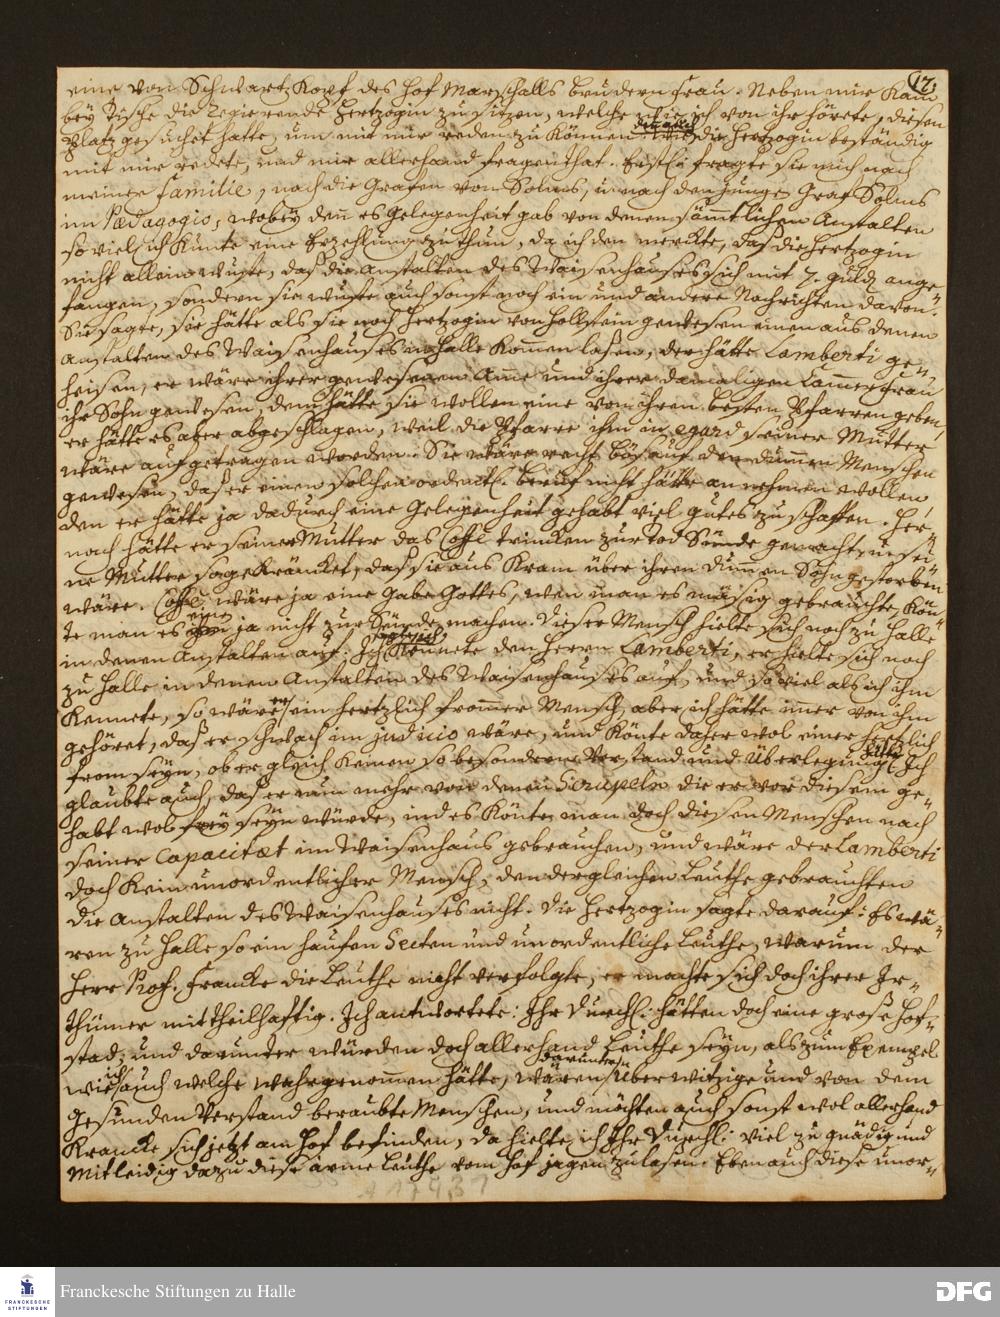 12.
eine von Schwartz Kopf des Hof Marschalls Brudern Frau. Neben mir kam
bey Tische die regierende Hertzogin zu sitzen, welche wie ich von ihr hörete, diesen
Platz gesuchet hatte, um mit mir reden zu können die Hertzogin beständig
mit mir redete, und mir allerhand fragen that. Erstl. fragte sie mich nach
meiner Familie, nach die Grafen von Solms, u. nach den junge Graf Solms
im Pædagogio, wobey den es Gelegenheit gab von denen sämtlichen Anstalten
so viel ich kunte eine Erzehlung zu thun, da ich den merckte, daß die Hertzogin
nicht allein wuste, daß die Anstalten des Waisenhauses sich mit 7. Guld. ange-
fangen, sondern sie wuste auch sonst noch ein und andere Nachrichten davon.
Sie sagte, sie hätte als sie noch Hertzogin von Hollstein gewesen einen aus denen
Anstalten des Waisenhauses in Halle kommen laßen, der hätte Lamberti ge-
heisen, er wäre ihrer gewesenen Amme und ihrer damaligen Cammerfrau
ihr Sohn gewesen, dem hätte sie wollen eine von ihren besten Pfarren geben,
er hätte es aber abgeschlagen, weil die Pfarre ihm in egard seiner Mutter
wäre aufgetragen worden. Sie wäre recht bös auf den dummen Menschen
gewesen, daß er einen solchen ordentl. Beruf nicht hätte annehmen wollen
den er hätte ja dadurch eine Gelegenheit gehabt viel gutes zu schaffen. Her-
nach hätte er seiner Mutter das Coffé trincken zur Tod Sünde gemacht, u. sei-
ne Mutter so gekräncket, daß sie aus Kram über ihren dummen Sohn gestorben
wäre. Coffé wäre ja eine Gabe Gottes, wen man es mäsig gebrauchte, kön-
te man es einem ja nicht zur Sünde machen. Dieser Mensch hielte sich noch zu Halle
in denen Anstalten auf. Ich kennete den Herrn Lamberti, er hielte sich noch
zu Halle in denen Anstalten des Waisenhauses auf, und so viel als ich ihn
kennete, so wäre er ein hertzlich frommer Mensch, aber ich hätte immer von ihm
gehöret, daß er schwach im judicio wäre, und könte daher wol einer hertzlich
from seyn, ob er gleich keinen so besondern Verstand und Überlegung hätte. Ich
glaubte auch, daß er nun mehr von denen Scrupeln die er vor diesem ge-
habt wol frey seyn würde, indes könte man doch diesen Menschen nach
seiner Capacitæt im Waisenhaus gebrauchen, und wäre der Lamberti
doch kein unordentlicher Mensch, den dergleichen Leuthe gebrauchten
die Anstalten des Waisenhauses nicht. Die Hertzogin sagte darauf: Es wä-
ren zu Halle so ein hauffen Secten und unordentliche Leuthe, warum der
Herr Prof. Francke die Leuthe nicht verfolgte, er machte sich doch ihrer Ir-
thümer mit theilhaftig. Ich antwortete: Ihr Durchl. hätten doch eine große Hof-
stad, und darunter würden doch allerhand Leuthe seyn, als zum Exempel
wie ich auch welche wahrgenommen hätte, wären darunter überwitzige und von dem
gesunden Verstand beraubte Menschen, und möchten auch sonst wol allerhand
Krancke sich jetzt am Hof befinden, da hielte ich Ihr Durchl. viel zu gnädig und
mitleidig dazu diese arme Leuthe vom Hof jagen zu laßen. Eben auch diese unor-
Franckesche Stiftungen zu Halle
FRANCKESCHE
STIFTUNGEN
DFG